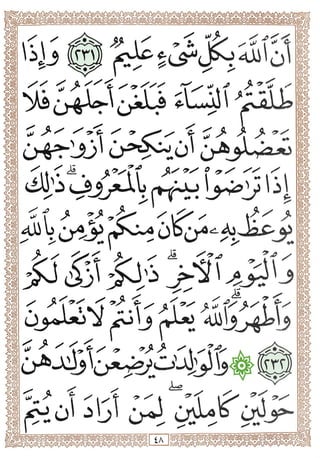 أَنَّ ٱللَّهَ بِكُلِّ شَىْءٍ عَلِيمٌ ٢٣١ وَإِذَا
طَلَّقْتُمُ ٱلنِّسَآءَ فَبَلَغْنَ أَجَلَهُنَّ فَلَا
تَعْضُلُوهُنَّ أَن يَنكِحْنَ أَزْوَٰجَهُنَّ
إِذَا تَرَٰضَوْا۟ بَيْنَهُم بِٱلْمَعْرُوفِ ۗ ذَٰلِكَ
يُوعَظُ بِهِۦ مَن كَانَ مِنكُمْ يُؤْمِنُ بِٱللَّهِ
وَٱلْيَوْمِ ٱلْءَاخِرِ ۗ ذَٰلِكُمْ أَزْكَىٰ لَكُمْ
وَأَطْهَرُ ۗ وَٱللَّهُ يَعْلَمُ وَأَنتُمْ لَا تَعْلَمُونَ
٢٣٢ ۞ وَٱلْوَٰلِدَٰتُ يُرْضِعْنَ أَوْلَٰدَهُنَّ
حَوْلَيْنِ كَامِلَيْنِ ۖ لِمَنْ أَرَادَ أَن يُتِمَّ
٤٨